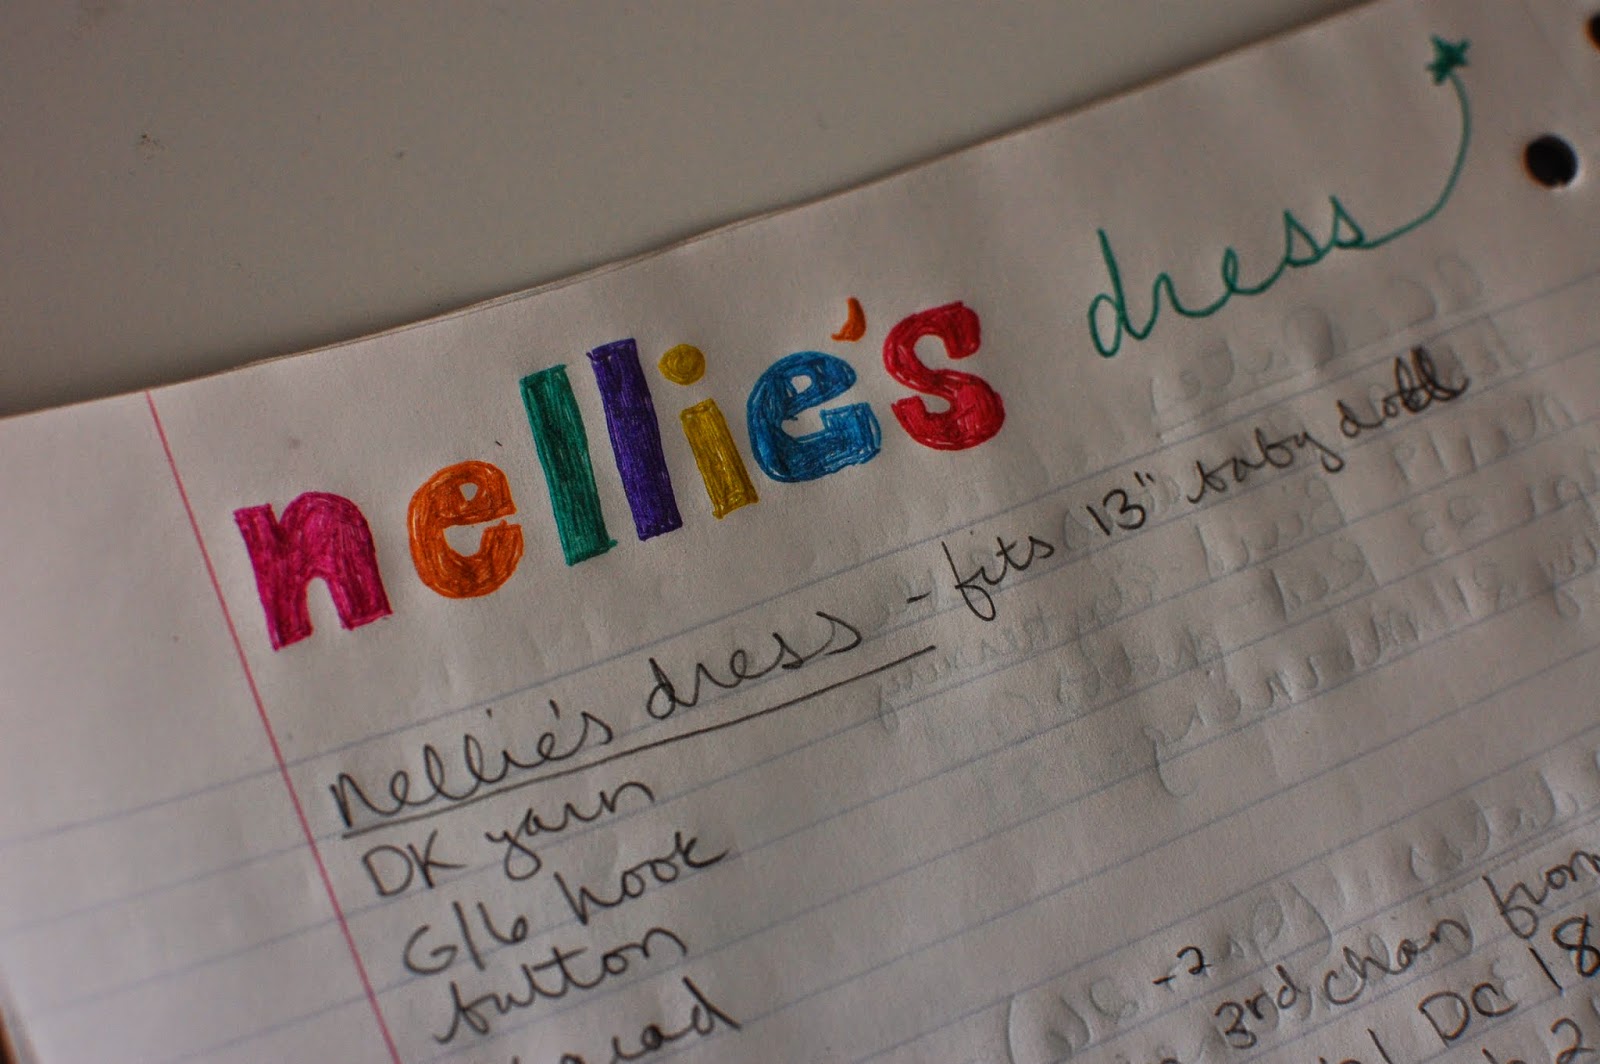 nellie's dress
nellie's dress - fits 13" baby doll
DK yarn
G/6 hook
button
-2
3rd chain from
DC 18